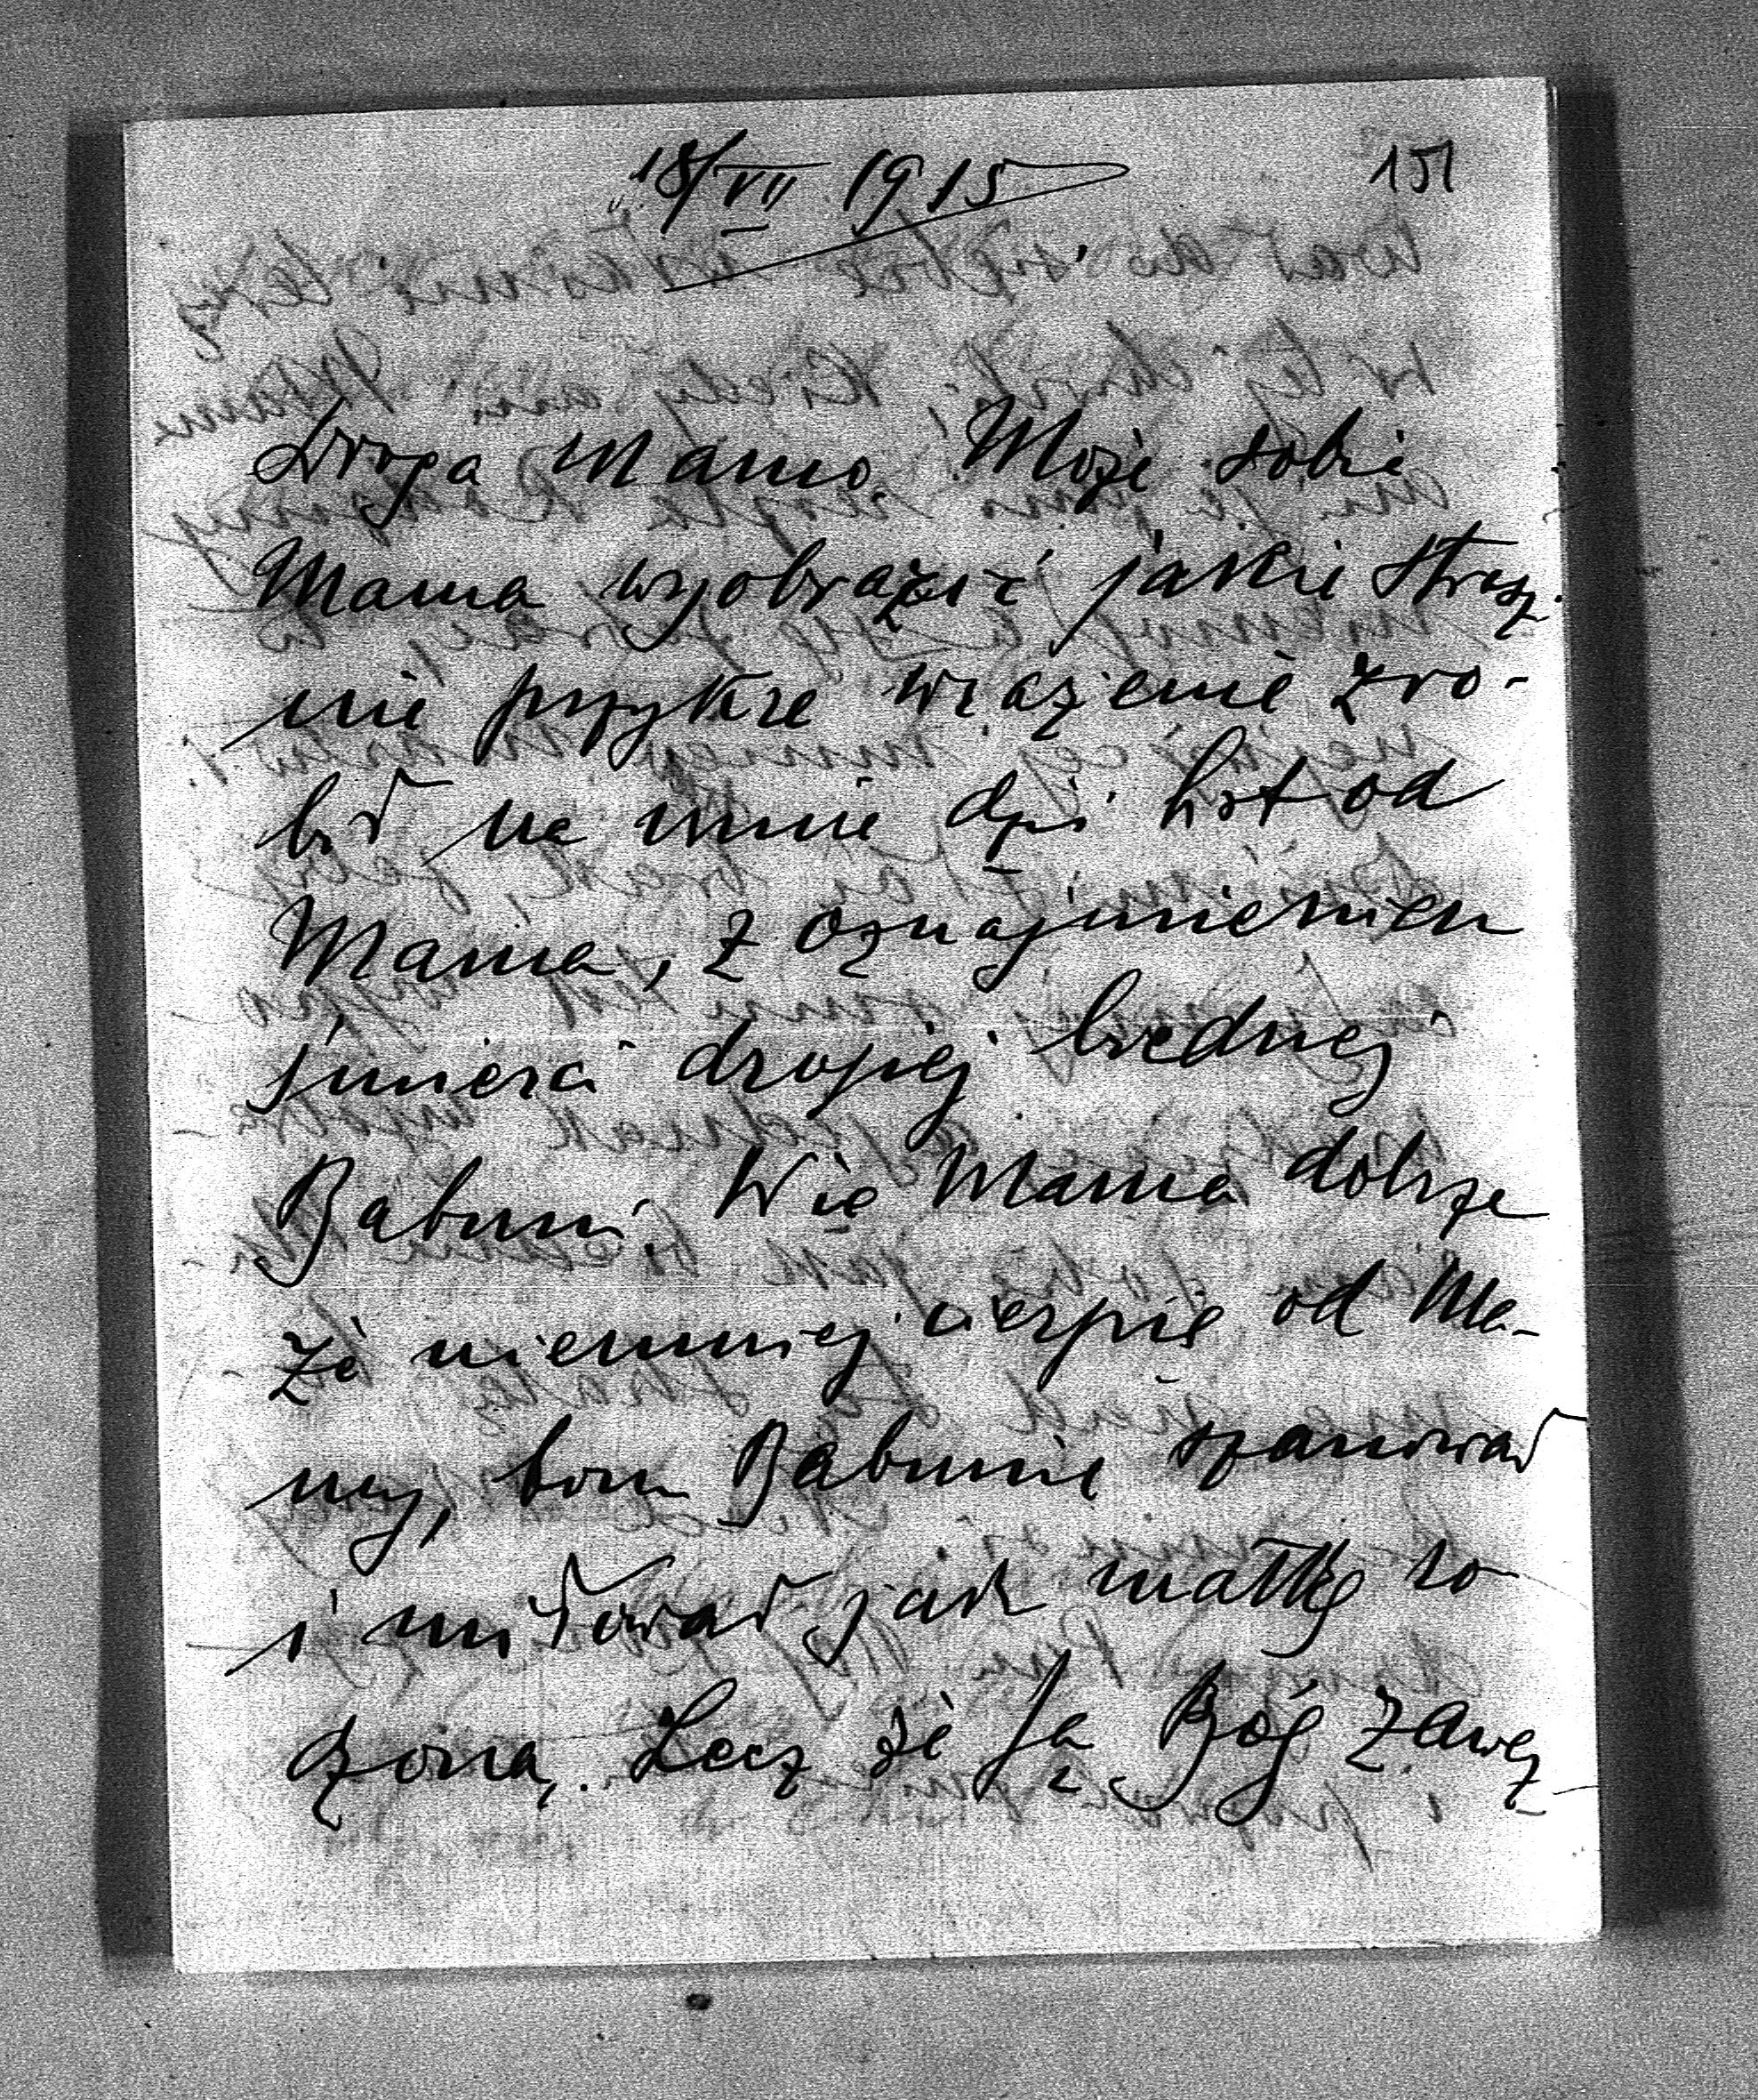 18/VII 1915
151
Droga Mamo. Może sobie
Mama wyobrazić jakie strasz-
nie przykre wrażenie zro-
bił na mnie dziś list od
Mama, z oznajmieniem
śmierci drogiej biednej
Babuni. Wie Mama dobrze
że niemniej cierpię od Ma-
my, bom Babunię szanował
i miłował jak matkę ro-
dzoną. Lecz że Ją Bóg zawez-